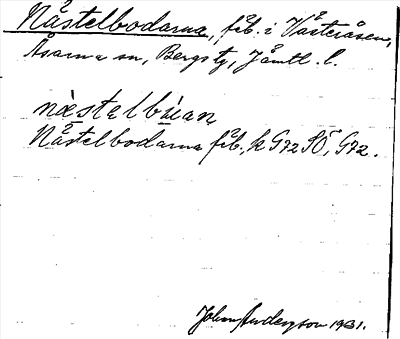 Nåstelbodarna, fåb. i Västeråsen,
Åsarna sn, Bergs tg, Jämtl. l.
næ̀stęlbúan
Nåstelbodarna fåb., k G72 SÖ, G72.
John Anderson 1931.